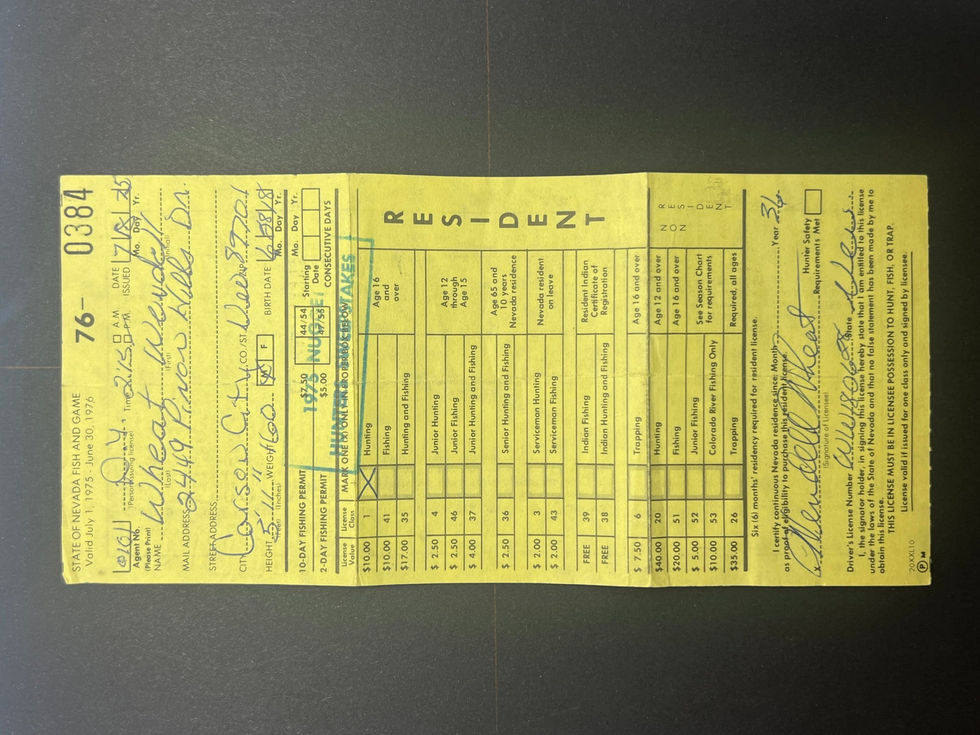 STATE OF NEVADA FISH AND GAME
76- 0384
Valid July 1, 1975 - June 30, 1976
Agent No. (Person issuing license) Time 2:15 A M P M DATE ISSUED 7/18/75 Mo. Day Yr.
(Please Print)
NAME Wheat Wendell
(Last) (First) (Initial)
MAIL ADDRESS 2449 Pinon Hills Dr.
STREET ADDRESS
CITY Carson City CO./ST. 89701
HEIGHT 5' 11" WEIGHT 160 M F BIRTH DATE
(Feet) (Inches) Mo. Day Yr.
10-DAY FISHING PERMIT $7.50 44/54 Starting Date Mo. Day Yr.
2-DAY FISHING PERMIT $5.00 47/55 CONSECUTIVE DAYS
1975 NUDGE
HUNTERS MAKES
License Value License Class MARK ONE (X) ONLY IN PROPER BOX BELOW
RESIDENT
$10.00 1 X Hunting Age 16
$10.00 41 Fishing and
$17.00 35 Hunting and Fishing over
$ 2.50 4 Junior Hunting Age 12
$ 2.50 46 Junior Fishing through
$ 4.00 37 Junior Hunting and Fishing Age 15
$ 2.50 36 Senior Hunting and Fishing Age 65 and 10 years Nevada residence
$ 2.00 3 Serviceman Hunting Nevada resident
$ 2.00 43 Serviceman Fishing on leave
FREE 39 Indian Fishing Resident Indian Certificate of
FREE 38 Indian Hunting and Fishing Registration
$ 7.50 6 Trapping Age 16 and over
NON RESIDENT
$40.00 20 Hunting Age 12 and over
$20.00 51 Fishing Age 16 and over
$ 5.00 52 Junior Fishing See Season Chart
$10.00 53 Colorado River Fishing Only for requirements
$35.00 26 Trapping Required, all ages
Six (6) months' residency required for resident license.
I certify continuous Nevada residence since: Month Year 36
as proof of eligibility to purchase this resident license.
x Wendell Wheat Hunter Safety Requirements Met
(Signature of Licensee)
Driver's License Number State Nev
I, the signator holder, in signing this license hereby state that I am entitled to this license
under the laws of the State of Nevada and that no false statement has been made by me to
obtain this license.
THIS LICENSE MUST BE IN LICENSEE POSSESSION TO HUNT, FISH, OR TRAP.
License valid if issued for one class only and signed by licensee.
20XXL10
P M